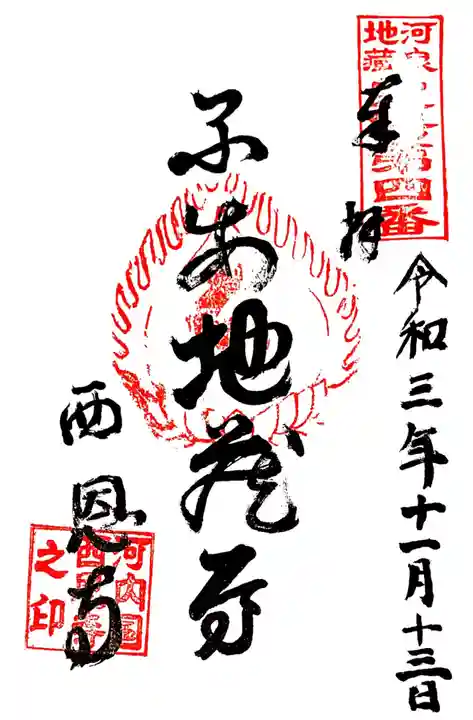 第四番
奉拝
令和三年十一月十三日
子安地蔵尊
西恩寺
河内国
西恩寺
之印